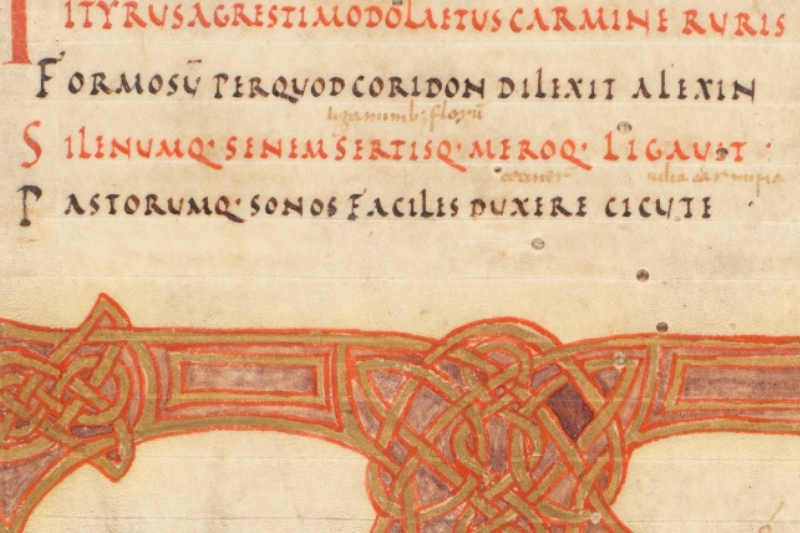 TITYRUS AGRESTI MODO LAETUS CARMINE RURIS
FORMOSŪ PERQUOD CORIDON DILEXIT ALEXIN
SILENUMQ· SENEM SERTISQ· MEROQ· LIGAUIT·
PASTORUMQ· SONOS FACILES DUXERE CICUTE